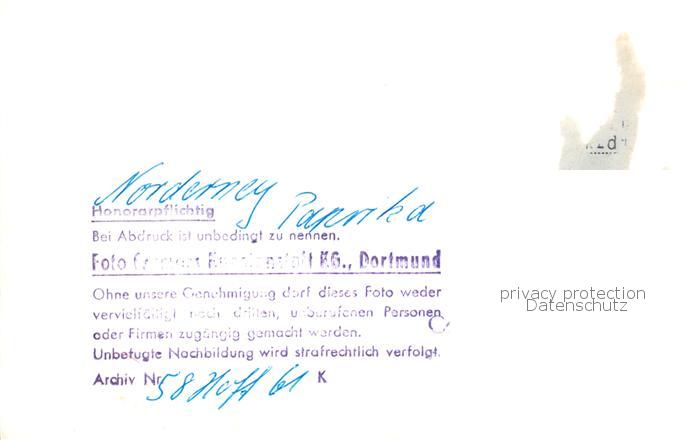 Norderney Paprika
Honorarpflichtig
Bei Abdruck ist unbedingt zu nennen.
Foto Kunstanstalt KG., Dortmund
Ohne unsere Genehmigung darf dieses Foto weder
vervielfältigt noch dritten, unberufenen Personen
oder Firmen zugängig gemacht werden.
Unbefugte Nachbildung wird strafrechtlich verfolgt.
Archiv Nr. 58 Hoff 61 K
privacy protection
Datenschutz